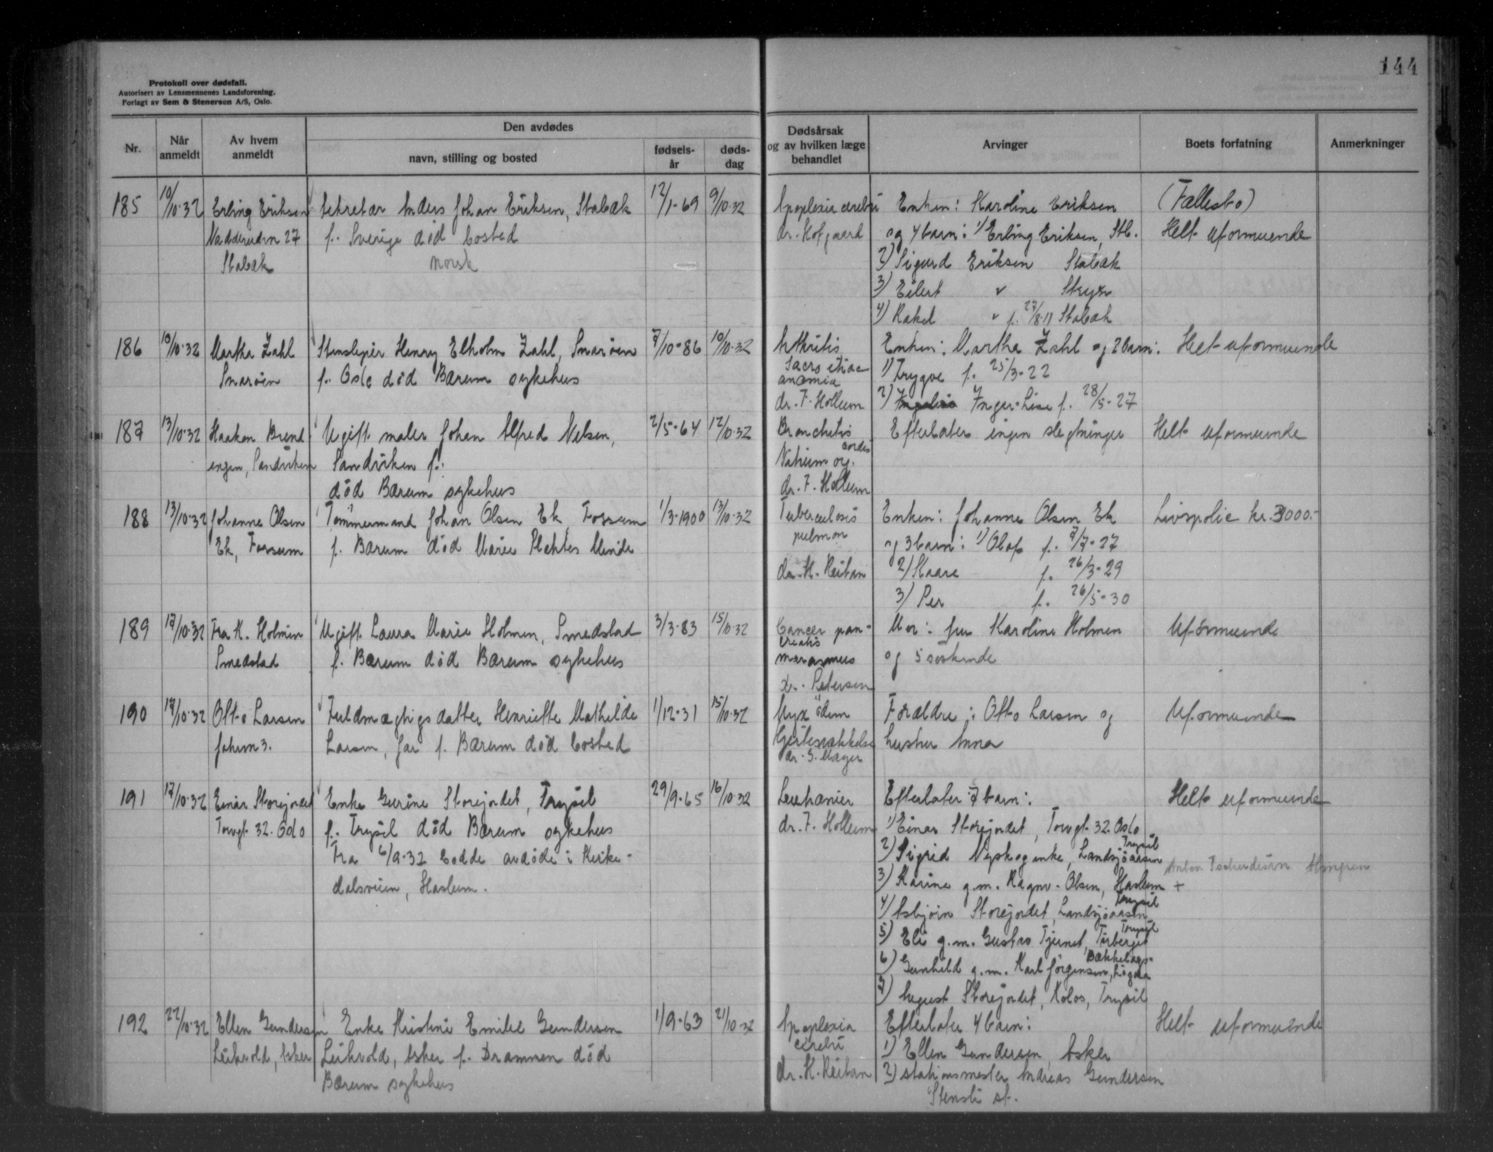 144
Protokoll over dødsfall.
Autorisert av Lensmennenes Landsforening.
Forlagt av Sem & Stenersen A/S, Oslo.
Nr.
Når anmeldt
Av hvem anmeldt
Den avdødes
navn, stilling og bosted
fødsels-år
døds-dag
Dødsårsak og av hvilken læge behandlet
Arvinger
Boets forfatning
Anmerkninger
185 10/10-32 Erling Eriksen Sekretær Anders Johan Eriksen, Stabæk 12/1-69 9/10-32 Apoplexia cerebri Enken: Karoline Eriksen (Fællesbo)
27 f. Sverige død bosted dr. Hofgaard og 4 barn: 1) Erling Eriksen, Stb. Helt uformuende
Stabæk norsk 2) Sigurd Eriksen Stabæk
3) Eilert " Stryn
4) Rakel " f. 27/8-11 Stabæk
186 10/10-32 Martha Zahl Henry Elholm Zahl, Snarøen 7/10-86 10/10-32 Arthritis Enken: Martha Zahl og 2 barn: Helt uformuende
Snarøen f. Oslo død Bærum sykehus anæmia 1) Trygve f. 25/3-22
dr. F. Hollum 2) Inger-Lise f. 28/5-27
187 13/10-32 Haakon Brend- Ugift maler Johan Alfred Nelsen, 2/5-64 12/10-32 Bronchitis Efterlater ingen slegtninger Helt uformuende
engen, Sandviken Sandviken f. cordis
død Bærum sykehus dr. F. Hollum
188 13/10-32 Johanne Olsen Tømmermand Johan Olsen Ek, Fossum 1/3-1900 13/10-32 Tuberculosis Enken: Johanne Olsen Ek Livspolie kr. 3000.-
Ek, Fossum f. Bærum død Marie Plahtes Minde pulmon og 3 barn: 1) Olaf f. 7/7-27
dr. H. Reitan 2) Kaare f. 26/3-29
3) Per f. 26/5-30
189 17/10-32 Fra K. Holmen Ugift Laura Marie Holmen, Smedstad 3/3-83 15/10-32 Cancer pan- Mor: fru Karoline Holmen Uformuende
Smedstad f. Bærum død Bærum sykehus creatis og 5 søskende
marasmus
dr. Petersen
190 18/10-32 Otto Larsen Fuldmægtigs datter Henriette Mathilde 1/12-31 15/10-32 Myxødem Forældre: Otto Larsen og Uformuende
Larsen, Jar f. Bærum død bosted hustru Anna
191 17/10-32 Einar Storejordet Enke Gurine Storejordet, Trysil 29/9-65 16/10-32 Efterlater 7 barn: Helt uformuende
Torvgt. 32. Oslo f. Trysil død Bærum sykehus dr. F. Hollum 1) Einar Storejordet, Torvgt. 32. Oslo
Fra 6/9-32 bodde avdøde i Kirke- 2) Sigrid Nyskog enke, Landsjøaasen Trysil
dalsveien, Haslum. 3) Karine g.m. Ragnv. Olsen, Haslum +
4) Asbjørn Storejordet, Landsjøaasen Trysil
5) Eli g.m. Gustav Tjernet, Tørberget Trysil
6) Gunhild g.m. Karl Jørgensen,
7) August Storejordet, Kolos, Trysil
192 22/10-32 Ellen Gundersen Enke Kristine Emilie Gundersen 1/9-63 21/10-32 Apoplexia Efterlater 4 barn: Helt uformuende
Leikvold, Asker Leikvold, Asker f. Drammen død cerebri 1) Ellen Gundersen, Asker
Bærum sykehus dr. H. Reitan 2) stationsmester Andreas Gundersen
Stensli st.